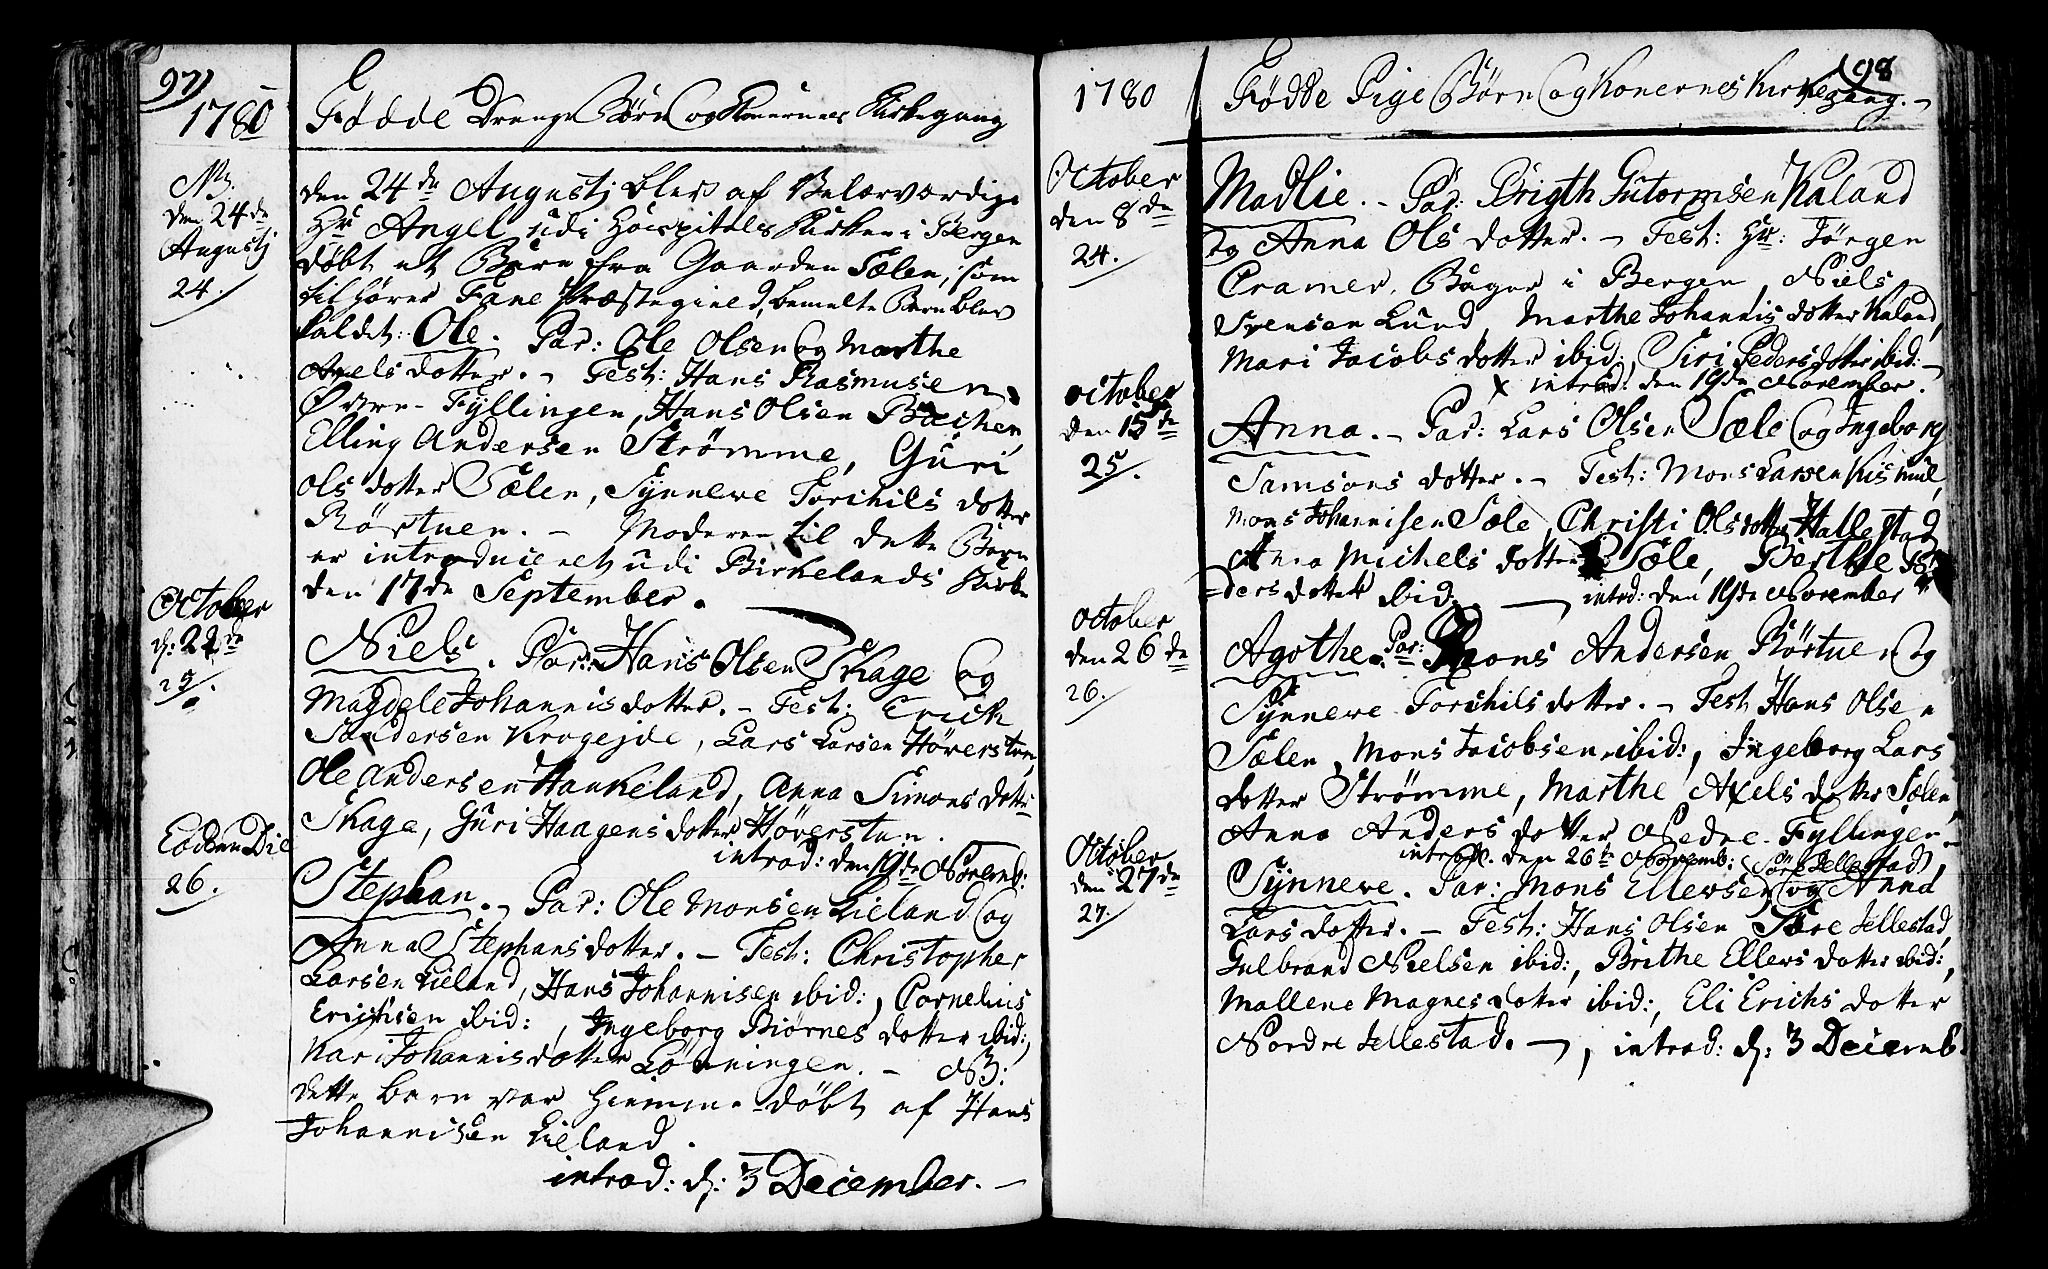 97)
1780
Fødde Drenge Børn og Konernes Kirkegang
NB.
den 24de
Augustj
24.
den 24de Augustj blev af Velærværdige
Hr Angel udi Hospitals Kirken i Bergen
døbt et Barn fra Gaarden Sælen, som
tilhører Fane Præstegield, bemelte Barn blev
kaldet: Ole. Par: Ole Olsen og Marthe
Axels dotter. - Test: Hans Rasmusen
Øvre-Fyllingen, Hans Olsen Bachen,
Elling Andersen Strømme, Guri
Ols dotter Sælen, Synneve Torchils dotter
Rørtuen. - Moderen til dette Barn
er introduceret udi Birkelands Kirke
den 17de September.
October
d: 22de
25.
Niels. Par: Hans Olsen Skage og
Magdele Johannis dotter. - Test: Erich
Sandersen Krogejde, Lars Larsen Höversten,
Ole Andersen Haukeland, Anna Simons dotter
Skage, Guri Haagens dotter Höversten.
introd: den 19de Novemb:
Eodem Die
26.
Stephan. - Par: Ole Monsen Lieland og
Anna Stephans dotter. - Test: Christopher
Larsen Lieland, Hans Johannisen ibid:, Cornelius
Erichsen ibid:, Ingeborg Biørnes dotter ibid:,
Kari Johannis dotter Lønningen. - NB:
dette barn var hiemme-døbt af Hans
Johannisen Lieland.
introd: d: 3 December. -
98
1780
Fødde Pige Børn og Konernes Kirkegang. -
October
den 8de
24.
Madlie. - Par: Brigth Gutormsen Kaland
og Anna Ols dotter. - Test: Hr: Jörgen
Cramer, Bager i Bergen, Niels
Svensen Lund, Marthe Johannis dotter Kaland,
Mari Jacobs dotter ibid:, Siri Peders dotter ibid: -
introd: den 19de November.
October
den 15de
25.
Anna. - Par: Lars Olsen Sæle og Ingeborg
Samsons dotter. - Test: Mons Larsen
Mons Johannisen Sæle, Christi Ols dotter Hallestad
Anna Michels dotter Sæle, Berthe
ders dotter ibid. - introd: den 19de November
October
den 26de
26.
Agothe. Par: Mons Andersen Rörtuen og
Synneve Torchils dotter. - Test Hans Olsen
Sælen, Mons Jacobsen ibid:, Ingeborg Lars
dotter Strømme, Marthe Axels dotter Sælen,
Anna Anders dotter Nedre-Fyllingen -
introd. den 26de Novemb: Söre Jellestad,
October
den 27de
27.
Synneve. Par: Mons Ellevsen og Anna
Lars dotter. - Test: Hans Olsen Søre Jellestad,
Gulbrand Nielsen ibid:, Brithe Ellers dotter ibid:,
Mallene Magnes dotter ibid:, Eli Erichs dotter
Nordre Jellestad. -, introd: d: 3 Decemb.